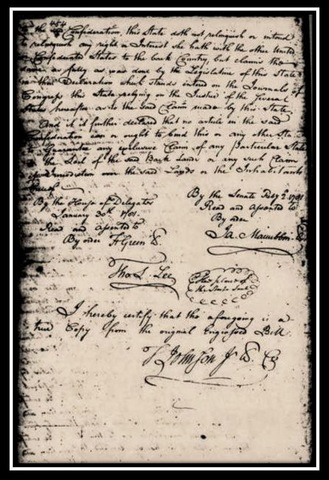 454
the Confederation, this State doth not relinquish or intend
to relinquish any right or Interest she hath with the other United or
Confederated States to the back Country, but claims the
same as fully as was done by the Legislature of this State
in their Declaration which stands entered on the Journals of
Congress this State relying on the Justice of the several
States hereafter as to the said Claim made by this State
And it is further declared that no article in the said
Confederation can or ought to bind this or any other State
to guarantee any exclusive Claim of any particular State
to the Soil of the said Back Lands or any such Claim
of Jurisdiction over the said Lands or the Inhabitants
thereof
By the House of Delegates
January 30th 1781
Read and assented to
By order F Green Ck
By the Senate Feby 2d 1781
Read and assented to
By order
Ja. Maccubbin Ck
Tho. S. Lee
The place of
the State Seal
I hereby certify that the aforegoing is a
true Copy from the original Engrossed Bill
T Johnson Jr Ck